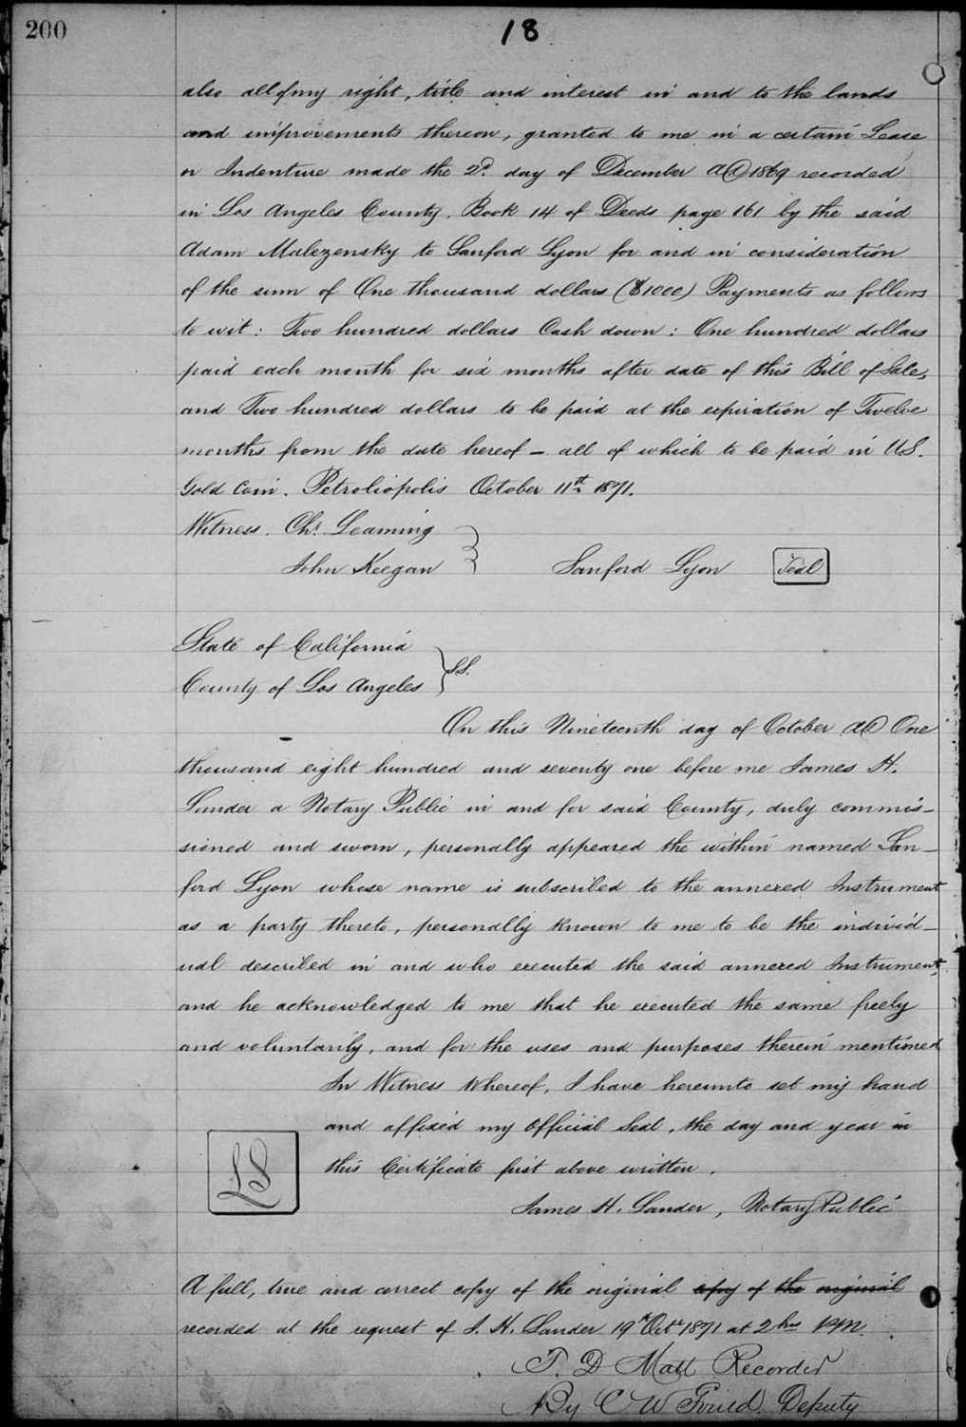 200
18
also all of my right, title and interest in and to the lands
and improvements thereon, granted to me in a certain Lease
or Indenture made the 2d. day of December AD 1869 recorded
in Los Angeles County. Book 14 of Deeds page 161 by the said
Adam Malezensky to Sanford Lyon for and in consideration
of the sum of One thousand dollars ($1000) Payments as follows
to wit: Two hundred dollars Cash down: One hundred dollars
paid each month for six months after date of this Bill of Sale,
and Two hundred dollars to be paid at the expiration of Twelve
months from the date hereof – all of which to be paid in U.S.
Gold Coin. Petroliopolis October 11th 1871.
Witness. Chs. Leaming
John Keegan } Sanford Lyon Seal
State of California
County of Los Angeles } S.S.
On this Nineteenth day of October AD One
thousand eight hundred and seventy one before me James H.
Lander a Notary Public in and for said County, duly commis-
sioned and sworn, personally appeared the within named San-
ford Lyon whose name is subscribed to the annexed Instrument
as a party thereto, personally known to me to be the individ-
ual described in and who executed the said annexed Instrument,
and he acknowledged to me that he executed the same freely
and voluntarily, and for the uses and purposes therein mentioned
In Witness Whereof, I have hereunto set my hand
and affixed my Official Seal, the day and year in
this Certificate first above written.
LS
James H. Lander, Notary Public
A full, true and correct copy of the original copy of the original
recorded at the request of J. H. Lander 19th Oct 1871 at 2 hrs P.M.
T. D. Mott Recorder
By C W Gould Deputy